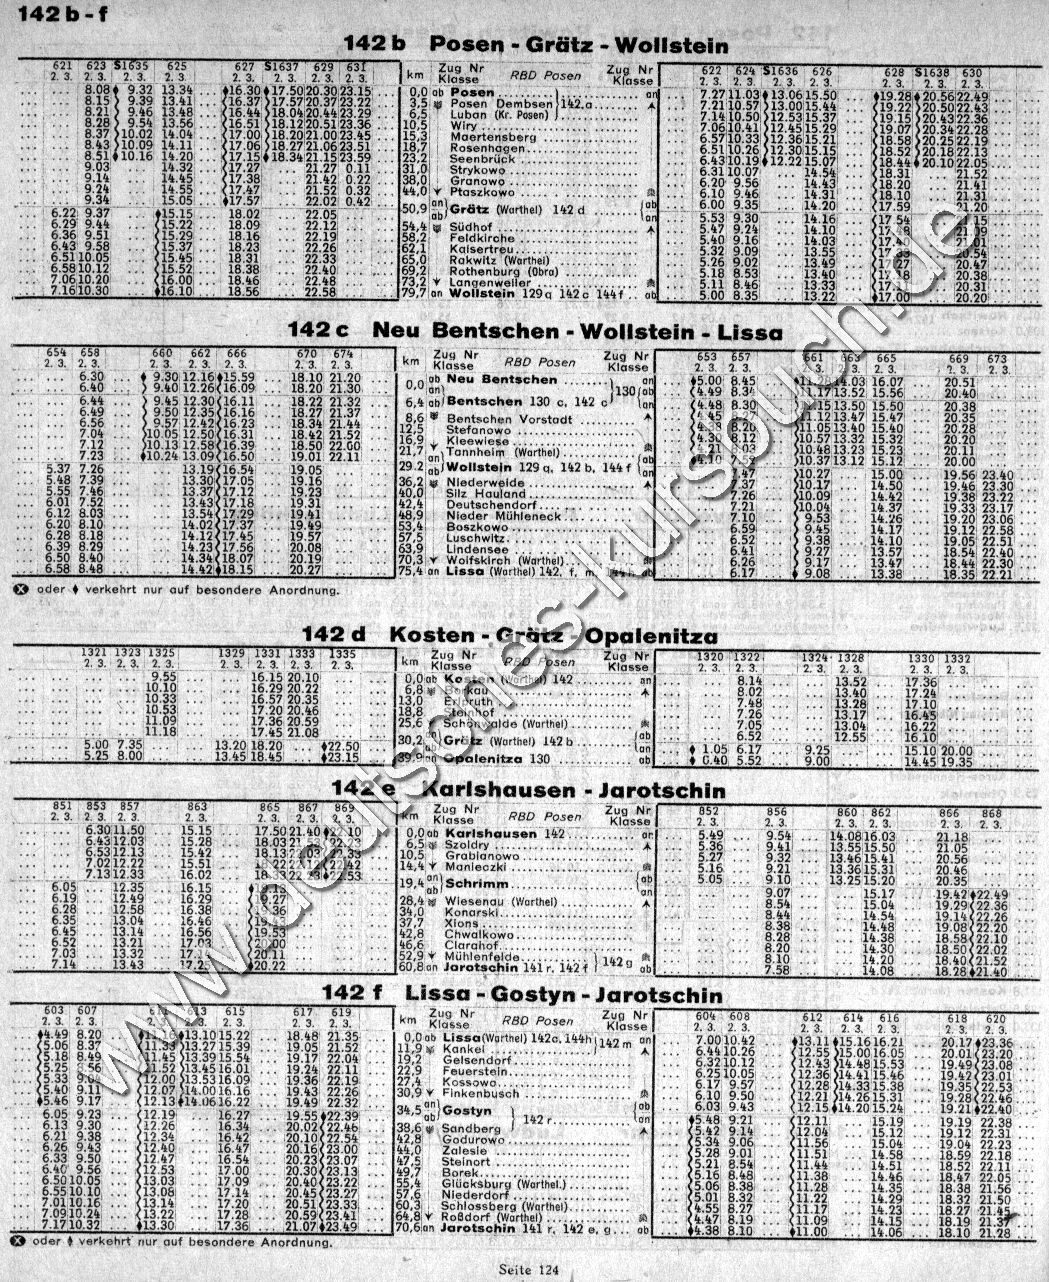 142 b - f
142 b Posen - Grätz - Wollstein
621 623 S1635 625 627 S1637 629 631 km Zug Nr Klasse RBD Posen Zug Nr Klasse 622 624 S1636 626 628 S1638 630
8.08 9.32 13.34 16.30 17.50 20.30 23.15 0,0 ab Posen an 7.27 11.03 13.06 15.50 19.28 20.56 22.49
8.15 9.39 13.41 16.37 17.57 20.37 23.22 3,5 Posen Dembsen 142.a 7.21 10.57 13.00 15.44 19.22 20.50 22.43
8.21 9.46 13.48 16.44 18.04 20.44 23.29 6,5 Luban (Kr. Posen) 7.14 10.50 12.53 15.37 19.15 20.43 22.36
8.28 9.54 13.56 16.51 18.12 20.51 23.36 10,5 Wiry 7.06 10.41 12.45 15.29 19.07 20.34 22.28
8.37 10.02 14.04 17.00 18.20 21.00 23.45 15,3 Maertensberg 6.57 10.33 12.36 15.21 18.58 20.25 22.19
8.43 10.09 14.11 17.06 18.27 21.06 23.51 18,7 Rosenhagen 6.51 10.26 12.30 15.15 18.52 20.18 22.13
8.51 10.16 14.20 17.15 18.34 21.15 23.59 23,2 Seenbrück 6.43 10.19 12.22 15.07 18.44 20.10 22.05
9.03 14.32 17.27 21.27 0.11 31,0 Strykowo 6.31 10.07 14.54 18.31 21.52
9.14 14.45 17.38 21.42 0.22 38,0 Granowo 6.20 9.56 14.43 18.20 21.41
9.24 14.55 17.47 21.52 0.32 44,0 Ptaszkowo 6.10 9.46 14.31 18.10 21.31
9.34 15.05 17.57 22.02 0.42 an 6.00 9.35 14.20 17.59 21.20
6.22 9.37 15.15 18.02 22.05 50,9 ab Grätz (Warthel) 142 d 5.53 9.30 14.16 17.54
6.29 9.44 15.22 18.09 22.12 54,4 Südhof 5.47 9.24 14.10
6.36 9.51 15.29 18.16 22.19 58,2 Feldkirche 5.40 9.16 14.03
6.43 9.58 15.37 18.23 22.26 62,1 Kaisertreu 5.32 9.09 13.55
6.51 10.05 15.45 18.31 22.33 65,0 Rakwitz (Warthel) 5.26 9.02 13.49 20.47
6.58 10.12 15.52 18.38 22.40 69,2 Rothenburg (Obra) 5.18 8.53 13.40 20.38
7.06 10.20 16.00 18.46 22.48 73,2 Langenweiler 5.11 8.46 13.33 20.31
7.16 10.30 16.10 18.56 22.58 79,7 an Wollstein 129 q 142 c 144 f ab 5.00 8.35 13.22 17.00 20.20
142 c Neu Bentschen - Wollstein - Lissa
654 658 660 662 666 670 674 km Zug Nr Klasse RBD Posen Zug Nr Klasse 653 657 661 665 669 673
6.30 9.30 12.16 15.59 18.10 21.20 0,0 ab Neu Bentschen an 5.00 8.45 14.03 16.07 20.51
6.40 9.40 12.26 16.09 18.20 21.30 an 130 ab 4.49 11.17 13.52 15.56 20.40
6.44 9.45 12.30 16.11 18.22 21.32 6,4 ab Bentschen 130 c, 142 c an 4.48 8.30 13.50 15.50 20.38
6.49 9.50 12.35 16.16 18.27 21.37 8,6 Bentschen Vorstadt 13.47 15.47 20.35
6.56 9.57 12.42 16.23 18.34 21.44 12,5 Stefanowo 11.05 13.40 15.40 20.28
7.04 10.05 12.50 16.31 18.42 21.52 16,9 Kleewiese 10.57 13.32 15.32 20.20
7.12 10.13 12.58 16.39 18.50 22.00 21,7 Tannheim (Warthe) 10.48 13.23 15.23 20.11
7.23 10.24 13.09 16.50 19.01 22.11 an 10.37 13.12 15.12 20.00
5.37 7.26 13.19 16.54 19.05 29.2 ab Wollstein 129 q, 142 b, 144 f 10.27 15.00 19.56 23.40
5.48 7.39 13.30 17.05 19.16 36,2 Niederweide 7.37 10.17 14.50 19.46 23.30
5.55 7.46 13.37 17.12 19.23 40,0 Silz Hauland 7.26 10.09 14.42 19.38 23.22
6.01 7.52 13.43 17.18 19.31 42,4 Deutschendorf 7.21 10.04 14.37 19.33 23.17
6.12 8.03 13.54 17.29 19.41 48,9 Nieder Mühleneck 7.10 9.53 14.26 19.20 23.06
6.20 8.10 14.02 17.37 19.49 53,4 Boszkowo 6.59 9.45 14.17 19.12 22.58
6.28 8.18 14.12 17.45 19.57 57,5 Luschwitz 6.52 9.38 14.10 19.05 22.51
6.39 8.29 14.23 17.56 20.08 63,9 Lindensee 6.41 9.27 13.57 18.54 22.40
6.50 8.40 14.34 18.07 20.19 70,3 Wolfskirch (Warthe) 9.17 13.47 18.44 22.30
6.58 8.48 14.42 18.15 20.27 75,4 an Lissa (Warthel) 142, f, m 6.17 9.08 13.38 18.35 22.21
oder verkehrt nur auf besondere Anordnung.
142 d Kosten - Grätz - Opalenitza
1321 1323 1325 1329 1331 1333 1335 km Zug Nr Klasse RBD Posen Zug Nr Klasse 1320 1322 1324 1328 1330 1332
9.55 16.15 20.10 0,0 ab Kosten (Warthel) 142 an 8.14 13.52 17.36
10.10 16.29 20.22 6,8 8.02 13.40 17.24
10.33 16.57 20.35 13,0 7.48 13.28 17.10
10.53 17.20 20.46 18,8 7.26 13.17 16.45
11.09 17.36 20.59 25,6 (Warthel) 7.05 13.04 16.22
11.18 17.45 21.08 an 6.52 12.55 16.10
5.00 7.35 13.20 18.20 22.50 30,2 ab Grätz (Warthel) 142 b 1.05 6.17 9.25 15.10 20.00
5.25 8.00 13.45 18.45 23.15 39,9 an Opalenitza 130 ab 0.40 5.52 9.00 14.45 19.35
142 e Karlshausen - Jarotschin
851 853 857 863 865 867 869 km Zug Nr Klasse RBD Posen Zug Nr Klasse 852 856 860 862 866 868
6.30 11.50 15.15 17.50 21.40 22.10 0,0 ab Karlshausen 142 an 5.49 9.54 14.08 16.03 21.18
6.43 12.03 15.28 18.03 6,5 Szoldry 5.36 9.41 13.55 15.50 21.05
6.53 12.13 15.42 18.13 10,5 Grabianowo 5.27 9.32 13.46 15.41 20.56
7.02 12.22 15.51 14,4 Manieczki 5.16 9.21 13.36 15.31 20.46
7.13 12.33 16.02 an 5.05 9.10 13.25 15.20 20.35
6.05 12.35 16.15 19,4 ab Schrimm 9.07 15.17 19.42 22.49
6.19 12.49 16.29 19.27 28,4 Wiesenau (Warthel) 8.54 15.04 19.29 22.36
6.28 12.58 16.38 34,0 Konarski 8.44 14.54 19.14 22.26
6.35 13.04 16.46 37,7 Xions 8.38 14.48 19.08 22.20
6.45 13.14 16.56 19.53 42,8 Chwalkowo 8.28 14.38 18.58 22.10
6.52 13.21 17.03 46,6 Clarahof 8.20 14.30 18.50 22.02
7.03 13.32 20.11 52,9 Mühlenfelde 142 g 8.10 14.20 18.40 21.52
7.14 13.43 20.22 60,8 an Jarotschin 141 r, 142 f ab 7.58 14.08 18.28 21.40
142 f Lissa - Gostyn - Jarotschin
603 607 613 615 617 619 km Zug Nr Klasse RBD Posen Zug Nr Klasse 604 608 612 614 616 618 620
4.49 8.20 13.10 15.22 18.48 21.35 0,0 ab Lissa (Warthel) 142c, 144h an 7.00 10.42 13.11 15.16 16.21 20.17 23.36
5.06 8.37 13.27 15.39 19.05 21.52 11,9 Kankel 142 m 6.44 10.26 12.55 15.00 16.05 20.01 23.20
5.18 8.49 11.45 13.39 15.54 19.17 22.04 19,2 Gelsendorf 6.32 10.12 12.43 14.48 15.53 19.49 23.08
5.25 8.56 11.52 13.45 16.01 19.24 22.11 22,9 Feuerstein 6.25 10.05 12.36 14.41 15.46 19.42 23.01
5.33 12.00 13.53 16.09 19.36 22.19 27,4 Kossowo 6.17 9.57 12.28 14.33 15.38 19.35 22.53
5.40 9.11 12.07 14.00 16.16 19.43 22.26 30,9 Finkenbusch 6.10 9.50 12.21 14.26 15.31 19.28 22.46
5.46 9.17 12.13 14.06 16.22 19.49 22.32 an 6.03 9.43 12.15 14.20 15.24 19.21 22.40
6.05 9.23 12.19 16.27 19.55 22.39 34,5 ab Gostyn 142 r 5.48 9.21 12.11 15.19 19.19 22.38
6.13 9.30 12.26 16.34 20.02 22.46 38,6 Sandberg 5.42 9.14 12.04 15.12 19.12 22.31
6.21 9.38 12.34 16.42 20.10 22.54 42,8 Godurowo 5.34 9.06 11.56 15.04 19.04 22.23
6.26 9.43 12.40 16.47 20.16 23.00 44,0 Zalesie 5.28 9.01 11.51 14.58 18.59 22.18
6.33 9.50 12.47 16.54 20.23 23.07 47,5 Steinort 5.21 8.54 11.44 14.51 18.52 22.11
6.40 9.56 12.53 17.00 20.30 23.13 49,7 Borek 5.16 8.48 11.38 14.46 18.47 22.05
6.50 10.05 13.03 17.09 20.40 23.22 55,4 Glücksburg (Warthel.) 5.06 8.38 11.28 14.35 18.38 21.56
6.55 10.10 13.08 17.14 20.45 23.27 57,6 Niederdorf 5.01 8.32 11.22 14.29 18.32 21.50
7.01 10.16 13.14 17.20 20.51 23.33 60,3 Schlossberg (Warthe) 4.55 8.27 11.17 14.23 18.27 21.45
7.09 10.24 13.22 17.28 20.59 23.41 64,8 Roßdorf (Warthe) 4.47 8.19 11.09 14.15 18.19 21.37
7.17 10.32 13.30 17.36 21.07 23.49 70,6 an Jarotschin 141 r, 142 e, g ab 4.38 8.10 11.00 14.06 18.10 21.28
oder verkehrt nur auf besondere Anordnung.
Seite 124
www.deutsches-kursbuch.de